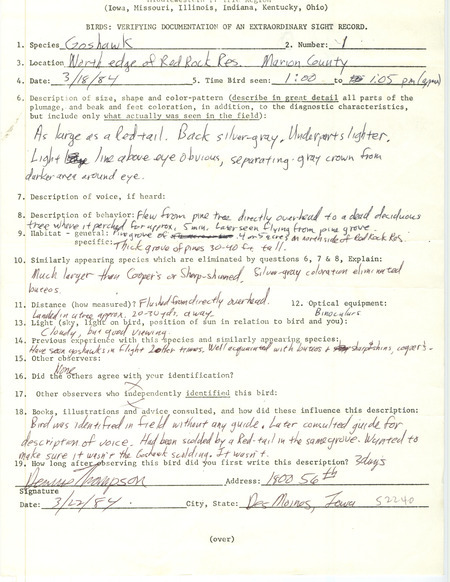 (Iowa, Missouri, Illinois, Indiana, Kentucky, Ohio)
BIRDS: VERIFYING DOCUMENTATION OF AN EXTRAORDINARY SIGHT RECORD.
1. Species Goshawk 2. Number: 1
3. Location North edge of Red Rock Res. Marion County
4. Date: 3/18/84 5. Time Bird seen: 1:00 to 1:05 pm (approx)
6. Description of size, shape and color-pattern (describe in great detail all parts of the
plumage, and beak and feet coloration, in addition, to the diagnostic characteristics,
but include only what actually was seen in the field):
As large as a Redtail. Back silver-gray. Underparts lighter.
Light line above eye obvious, separating gray crown from
darker area around eye.
7. Description of voice, if heard:
8. Description of behavior: Flew from pine tree directly overhead to a dead deciduous
tree where it perched for approx. 5 min. Later seen flying from pine grove.
9. Habitat - general: Pine grove of 4 or 5 acres on north side of Red Rock Res.
specific: Thick grove of pines 30-40 ft. tall.
10. Similarly appearing species which are eliminated by questions 6, 7 & 8, Explain:
Much larger than Cooper's or Sharp-shinned. Silver-gray coloration eliminated
buteos.
11. Distance (how measured)? Flushed from directly overhead. 12. Optical equipment:
Landed in a tree approx. 20-30 yds. away. Binoculars
13. Light (sky, light on bird, position of sun in relation to bird and you):
Cloudy, but good viewing.
14. Previous experience with this species and similarly appearing species:
Have seen goshawks in flight 2 other times. Well acquainted with buteos & sharpshins, cooper's.
15. Other observers:
None
16. Did the others agree with your identification?
17. Other observers who independently identified this bird:
18. Books, illustrations and advice consulted, and how did these influence this description:
Bird was identified in field without any guide. Later consulted guide for
description of voice. Had been scolded by a Red-tail in the same grove. Wanted to
make sure it wasn't the Goshawk scolding. It wasn't.
19. How long after observing this bird did you first write this description? 3 days
Dennis Thompson Address: 1800 56th
Signature
Date: 3/22/84 City, State: Des Moines, Iowa 52240
(over)